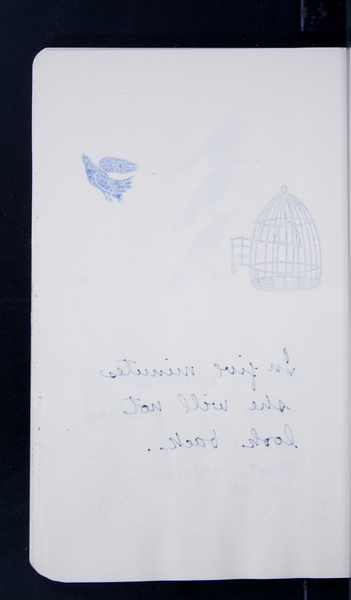 In five minutes
she will not
look back.